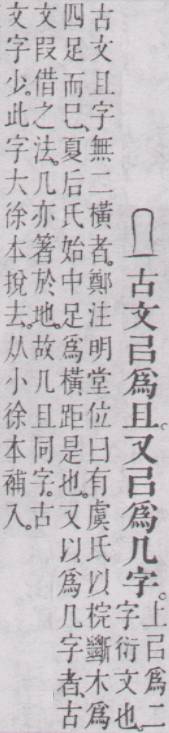 古文㠯爲且。又㠯爲几字。
上㠯爲二
字衍文也。
古文且字無二橫者。鄭注明堂位曰有虞氏以梡斷木爲
四足而巳。夏后氏始中足爲橫距是也。又以爲几字者。古
文叚借之法。几亦箸於地。故几且同字。古
文字少。此字大徐本挩去。从小徐本補入。